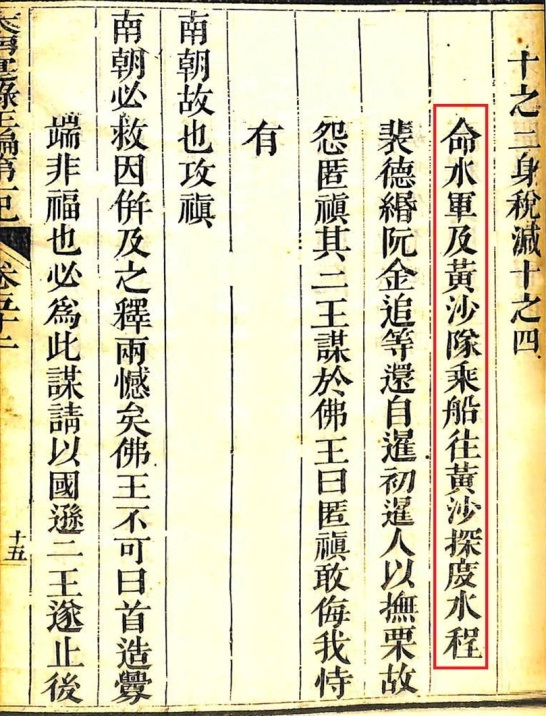 十之三身稅減十之四
命水軍及黃沙隊乘船往黃沙探度水程
裴德緡阮金追等還自暹初暹人以撫栗故
怨匿禛其二王謀於佛王曰匿禛敢侮我恃
有
南朝故也攻禛
南朝必救因倂及之釋兩憾矣佛王不可曰首造釁
端非福也必爲此謀請以國遜二王遂止後
大南寔錄正編第一紀 卷五十二
十五